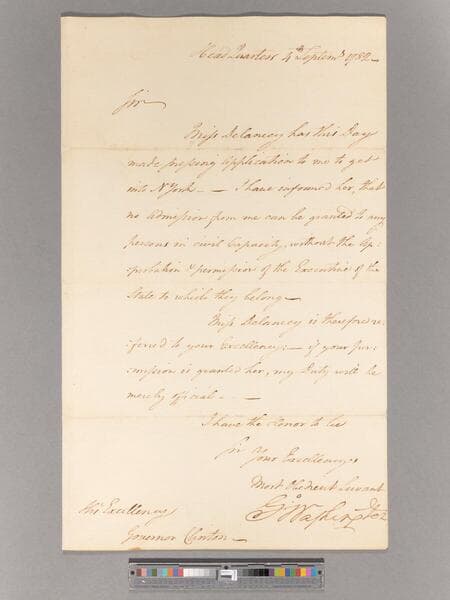 Head Quarters 4th Septemr 1782—
Sir
Miss Delancey has this Day
made pressing Application to me to get
into N York — — I have informed her, that
no Admission from me can be granted to any
persons in civil Capacity, without the Ap:
:probation & permission of the Executive of the
State to which they belong—
Miss Delancey is therefore re:
:ferred to your Excellency:— if your per:
:mission is granted her, my Duty will be
merely official — —
I have the Honor to be
Sir Your Excellency's
Most Obedient Servant
Go Washington
His Excellency
Governor Clinton—